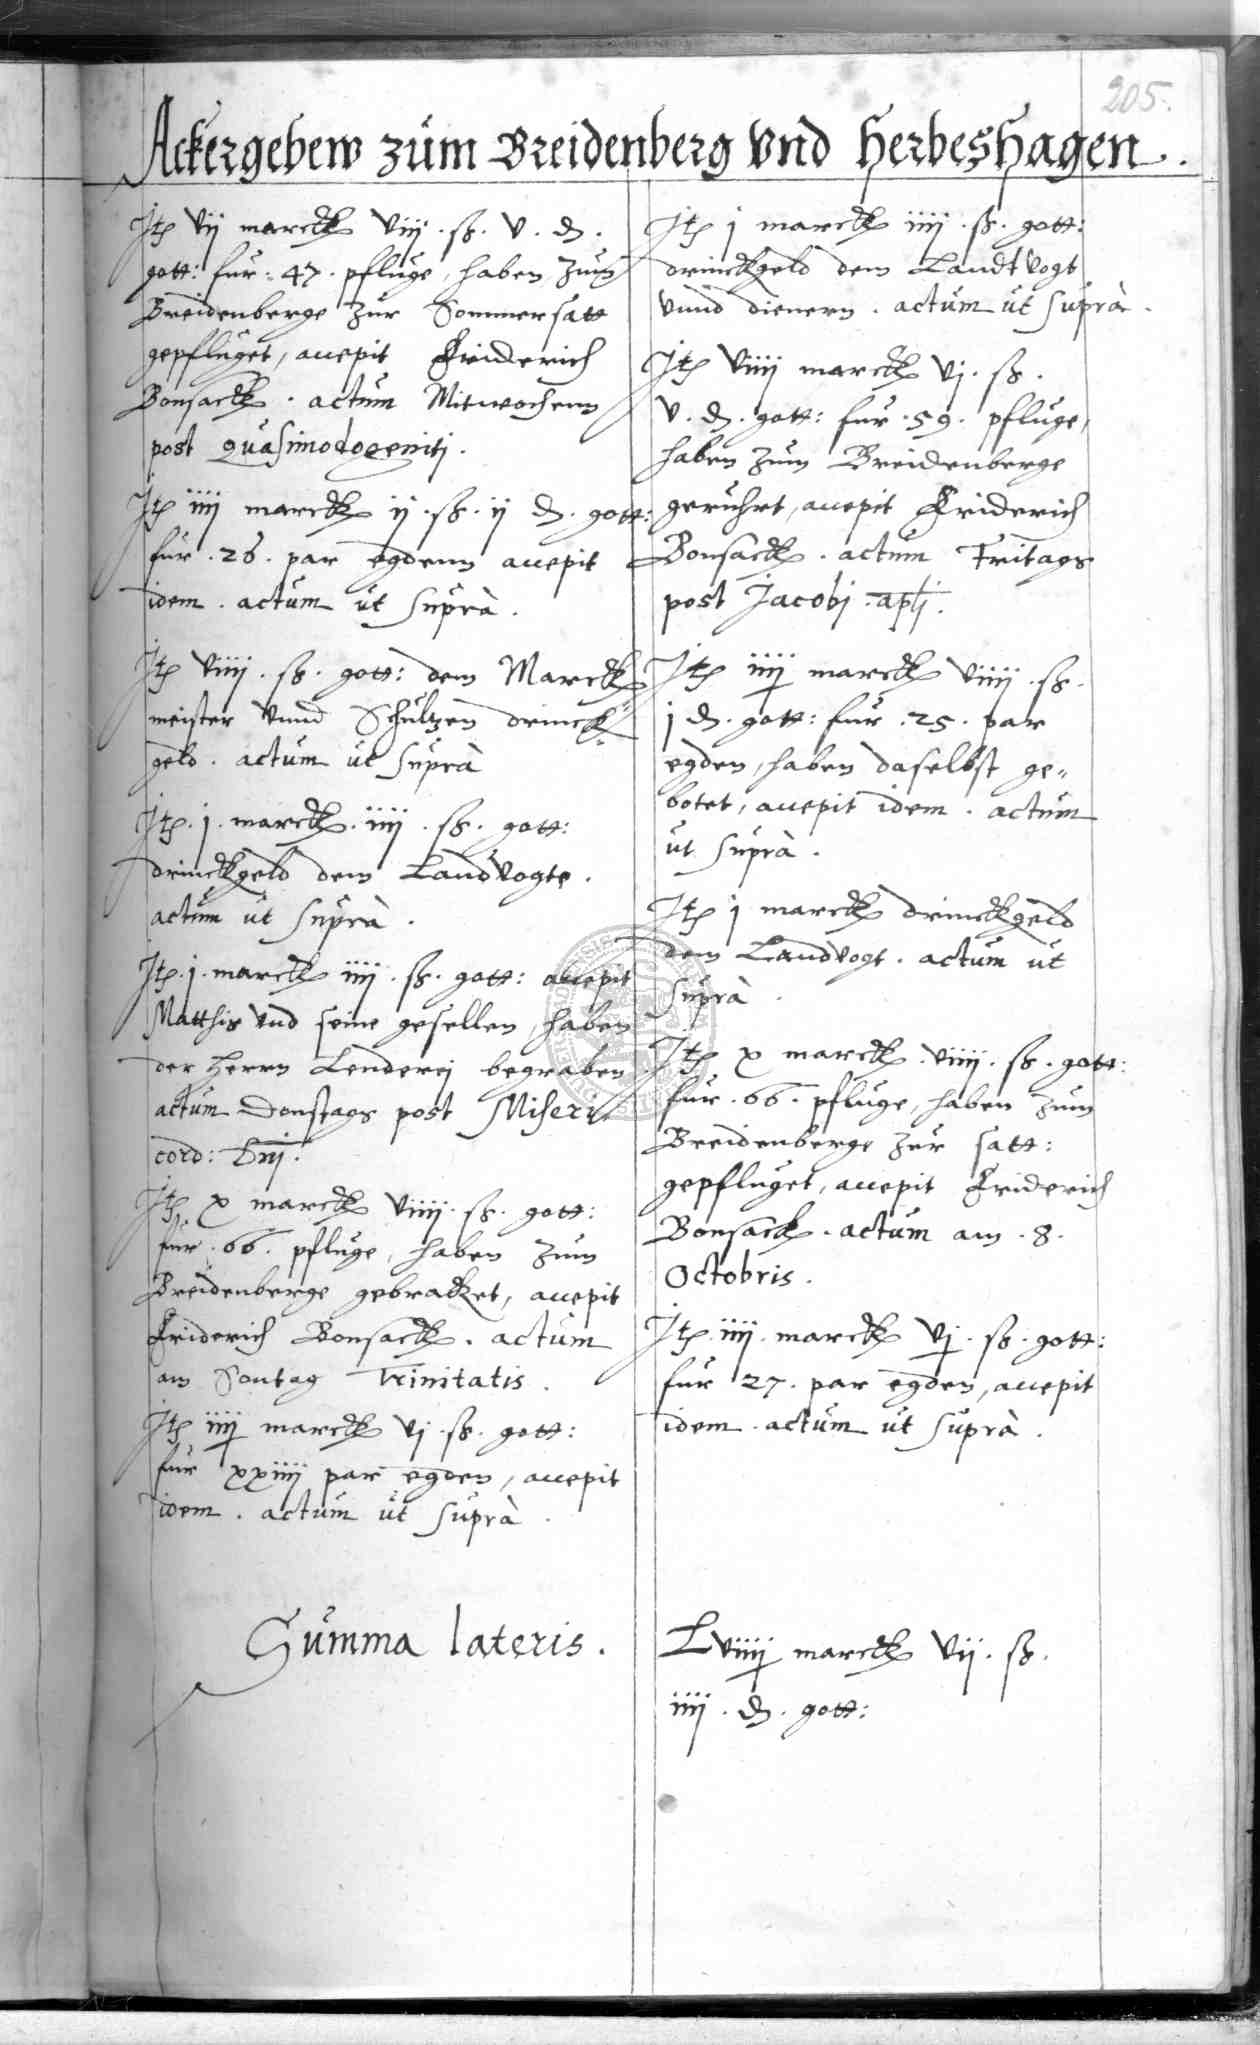 205.
Ackergebew zum Breidenberg vnd Herbeshagen.
Jt vij marck viij . ß . v . d .
gott: fur . 47 . pfluge, haben zum
Breidenberge zur Sommersatt
gepfluget, accepit Friderich
Bonsack . actum Mitwochenn
post quasimodogeniti .
Jt iiij marck ij . ß . ij d . gott:
fur . 26 . par egdenn accepit
idem . actum ut suprà .
Jt viiij . ß . gott: dem Marck
meister vnnd Schultzen drinck-
geld . actum ut suprà
Jt . j . marck . iiij . ß . gott:
drinckgeld dem Landvogte .
actum ut suprà .
Jt . j . marck iiij . ß . gott: accepit
Matthis vnd seine gesellen, haben
der Herrn Lenderej begraben
actum Donstags post Miseri
cord: Dnj .
Jt x marck viiij . ß . gott:
fur . 66 . pfluge, haben zum
Breidenberge gebracket, accepit
Friderich Bonsack . actum
am Sontag Trinitatis .
Jt iiij marck vj . ß . gott:
fur xxiiij par egden, accepit
idem . actum ut suprà .
Jt j marck iiij . ß . gott:
drinckgeld dem Landtvogt
vnnd dienern . actum ut suprà .
Jt viiij marck vj . ß .
v . d . gott: fur . 59 . pfluge,
haben zum Breidenberge
geruhrt, accepit Friderich
Bonsack . actum Fritags
post Jacobj . aplj .
Jt iiij marck viiij . ß .
j d . gott: fur . 25 . par
egden, haben daselbst ge„
botet, accepit idem . actum
ut suprà .
Jt j marck drinckgeld
dem Landvogt . actum ut
suprà .
Jt x marck . viiij . ß . gott:
fur . 66 . pfluge, haben zum
Breidenberge zur satt:
gepfluget, accepit Friderich
Bonsack . actum am . 8 .
Octobris .
Jt . iiij . marck vj . ß . gott:
fur 27 . par egden, accepit
idem . actum ut suprà .
Summa lateris .
Lviiij marck vij . ß .
iiij . d . gott: